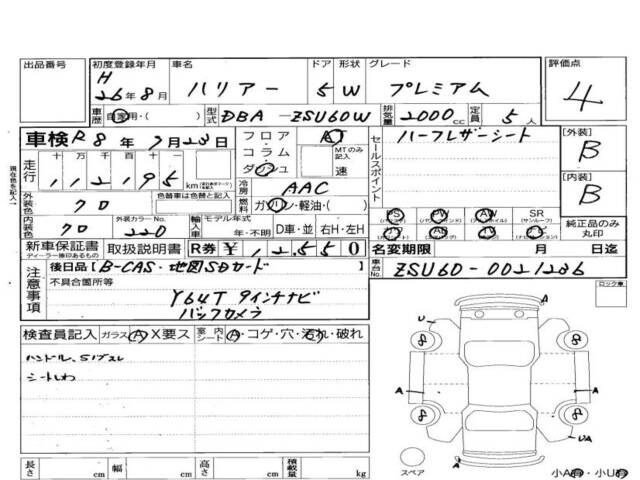 出品番号 初度登録年月 車名 ドア 形状 グレード 評価点
H 26年8月 ハリアー 5 W プレミアム 4
車歴 自家用・( ) 型式 DBA-ZSU60W 排気量 2000cc 定員 5人
車検 R8年 7月 23日 フロア AT セールスポイント ハーフレザーシート [外装]
コラム MTのみ記入 B
走行 十万 万 千 百 十 一 ダッシュ 速
112195 km 冷房 AAC [内装]
外装色 クロ 色替車は色替と記入 燃料 ガソリン・軽油・( ) B
内装色 クロ 外装カラーNo. 220 輸入車 モデル年式 年・不明 D車・並 右H・左H PS PW AW SR 純正品のみ丸印
新車保証書 取扱説明書 R券 ¥12550 名変期限 月 日迄
ディーラー捺印あるもの
注意事項 後日品【B-CAS・地図SDカード】 車台No. ZSU60-0021286
不具合箇所等 ロック車
Y64T 9インチナビ
バックカメラ
検査員記入 ガラス A X要ス 室内シート A・コゲ・穴・汚れ・破れ
ハンドル、Sノブスレ
シートしわ
A
U A
8 8
A A
8 8
UA
A
スペア 小A有・小U有
長さ cm 幅 cm 高さ cm 積載量 kg
現在色を記入